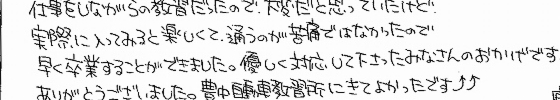 仕事をしながらの教習だったので、大変だと思っていたけど、
実際に入ってみると楽しくて、通うのが苦痛ではなかったので
早く卒業することができました。優しく対応して下さったみなさんのおかげです
ありがとうございました。豊中自動車教習所にきてよかったです↑↑